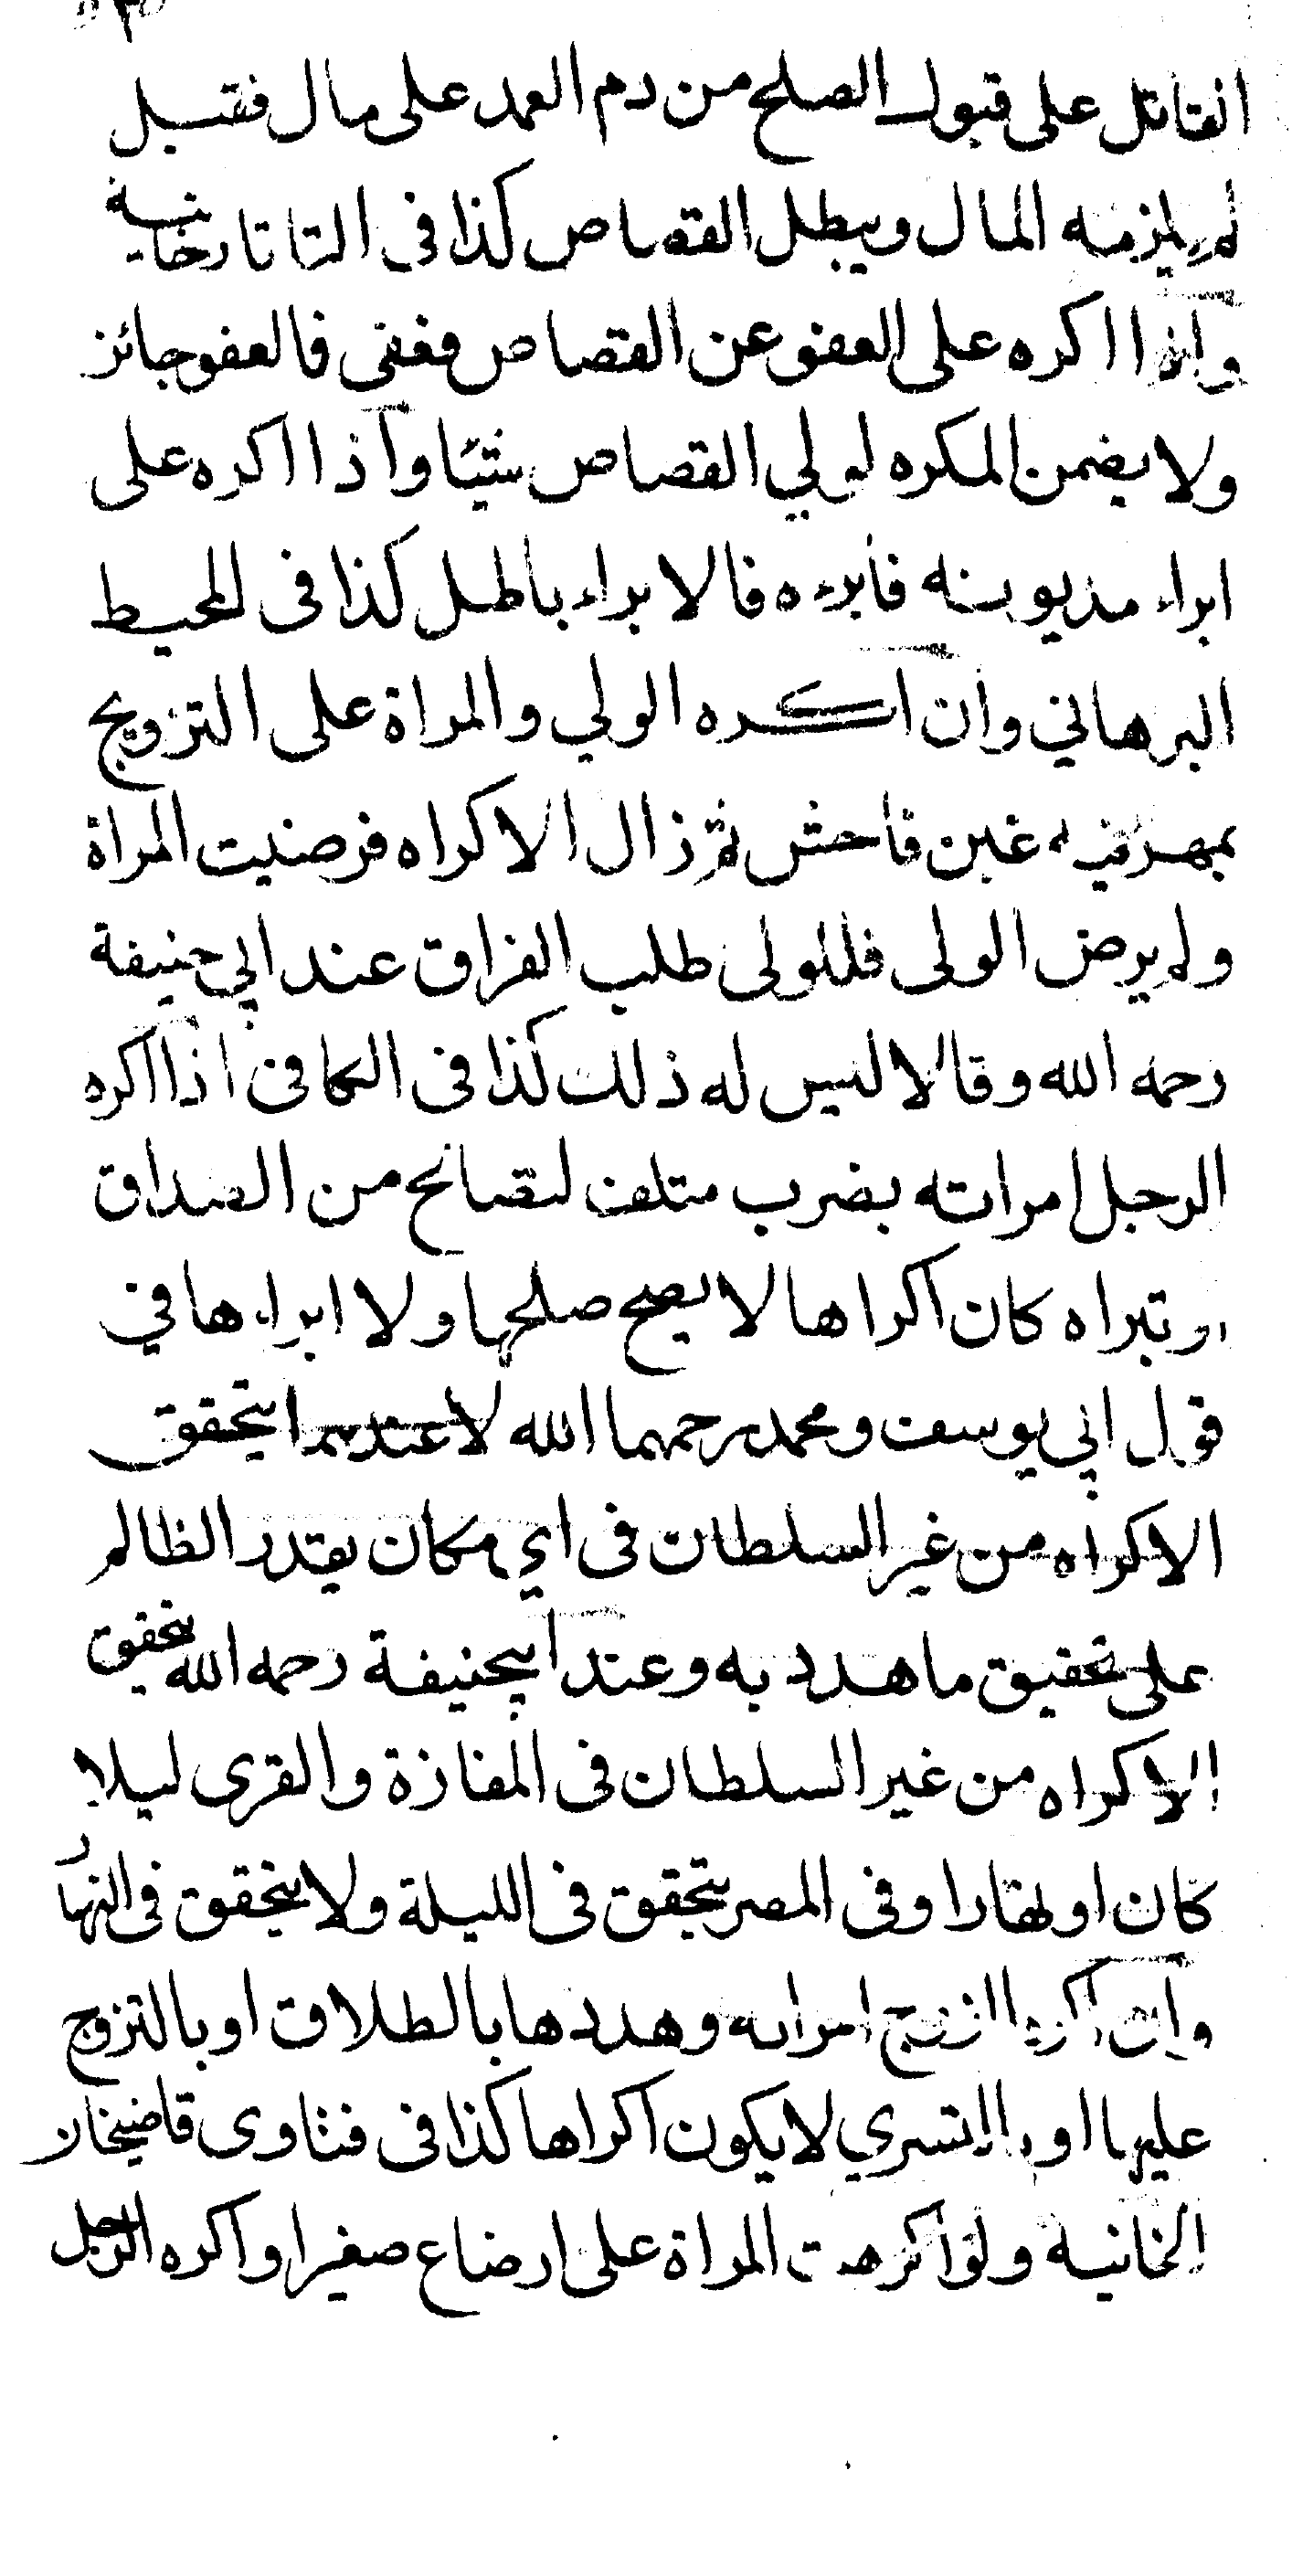 القاتل على قبول الصلح من دم العمد على مال فقبل
لم يلزمه المال ويبطل القصاص كذا فى التاتارخانية
واذا اكره على العفو عن القصاص فعفى فالعفو جائز
ولا يضمن المكره لولي القصاص شيئا واذا اكره على
ابراء مديونه فأبرءه فالابراء باطل كذا فى المحيط
البرهاني وان اكره الولي والمراة على التزويج
بمهر فيه غبن فاحش ثم زال الاكراه فرضيت المراة
ولم يرض الولى فللولى طلب الفراق عند ابي حنيفة
رحمه الله وقالا ليس له ذلك كذا فى الكافى اذا اكره
الرجل امراته بضرب متلف لتصالح من الصداق
او تبراه كان اكراها لا يصح صلحها ولا ابراءها في
قول ابي يوسف ومحمد رحمهما الله لا عندهما يتحقق
الاكراه من غير السلطان فى اي مكان يقدر الظالم
على تحقيق ما هدد به وعند ابيحنيفة رحمه الله يتحقق
الاكراه من غير السلطان فى المفازة والقرى ليلا
كان او نهارا وفى المصر يتحقق فى الليلة ولا يتحقق فى النهار
وان اكره الزوج امراته وهددها بالطلاق او بالتزوج
عليها او بالتسري لا يكون اكراها كذا فى فتاوى قاضيخان
الخانية ولو اكرهت المراة على ارضاع صغير او اكره الرجل